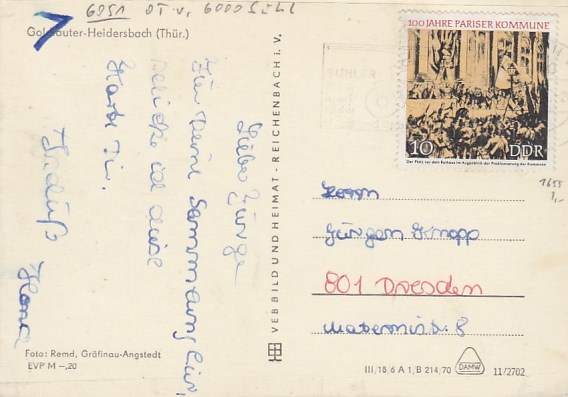 6851 OT v. 6000 Suhl
Goldlauter-Heidersbach (Thür.)
Lieber Jürgen
Für Deine Sammlung
schicke ich diese
Karte Dir.
Gruß
Ilona
Foto: Remd, Gräfinau-Angstedt
EVP M –,20
VEB BILD UND HEIMAT · REICHENBACH i. V.
100 JAHRE PARISER KOMMUNE
10
DDR
Der Platz vor dem Rathaus im Augenblick der Proklamierung der Kommune
1655
1,-
Herrn
Jürgen
801 Dresden
8
III/18/6 A 1/B 214/70
DAWW
11/2702